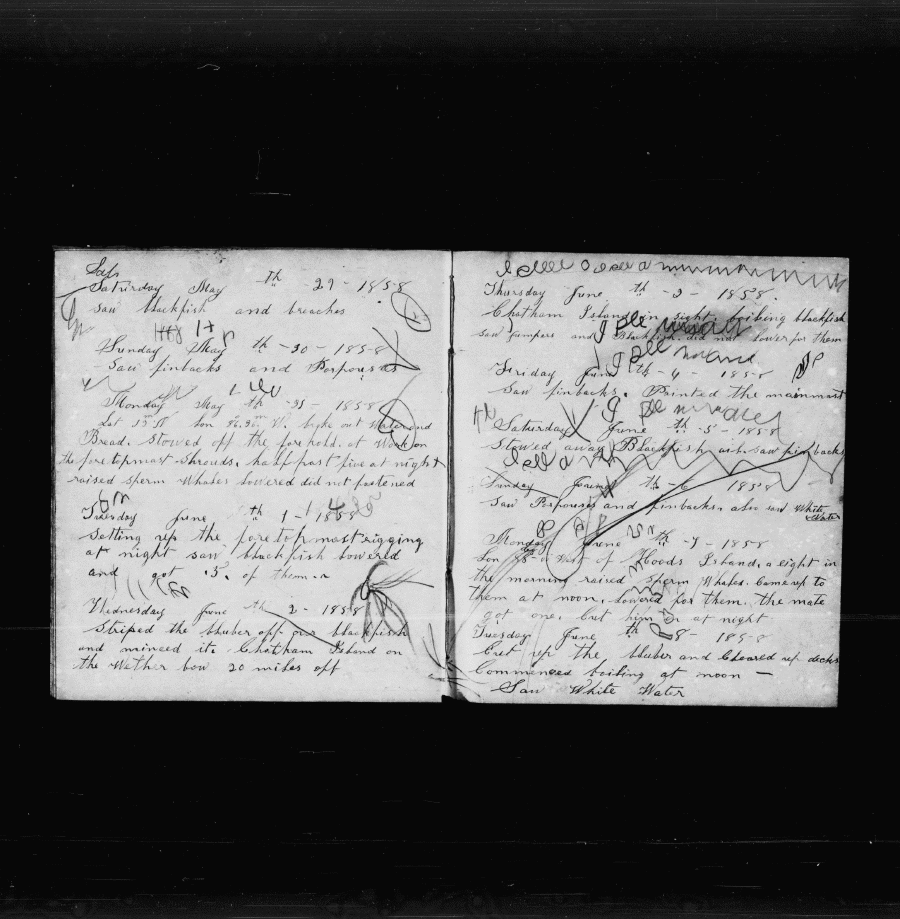 Sat
Saturday May th - 29 - 1858
Saw blackfish and breaches
Sunday May th - 30 - 1858
Saw finbacks and Porpouses
Monday May th - 31 - 1858
Lat Lon W. broke out Water and
Bread. Stowed off the forehold. at Work on
the foretopmast Shrouds. half past five at night
raised Sperm Whales lowered did not fastened
Tuesday June th 1 - 1858
Setting up the foretopmast rigging
at night saw blackfish lowered
and got .5. of them
Wednesday June th 2 - 1858
Striped the bluber off our blackfish
and minced it. Chatham Island on
the Wether bow 20 miles off
Thursday June th - 3 - 1858.
Chatham Island in sight boiling blackfish
Saw jumpers and Blackfish. did not lower for them
Friday June th - 4 - 1858
Saw finbacks. Painted the mainmast
Saturday June th - 5 - 1858
Stowed away Blackfish saw finbacks
Sunday June th - 6 1858
Saw Porpouses and finbacks also saw White
Water
Monday June th - 7 - 1858
Lon West of Hoods Island. a light in
the morning raised Sperm Whales. Came up to
them at noon. Lowered for them. the mate
got one. Cut him in at night
Tuesday June th 8 - 1858
Cut up the bluber and Cleared up decks
Commenced boiling at noon -
Saw White Water